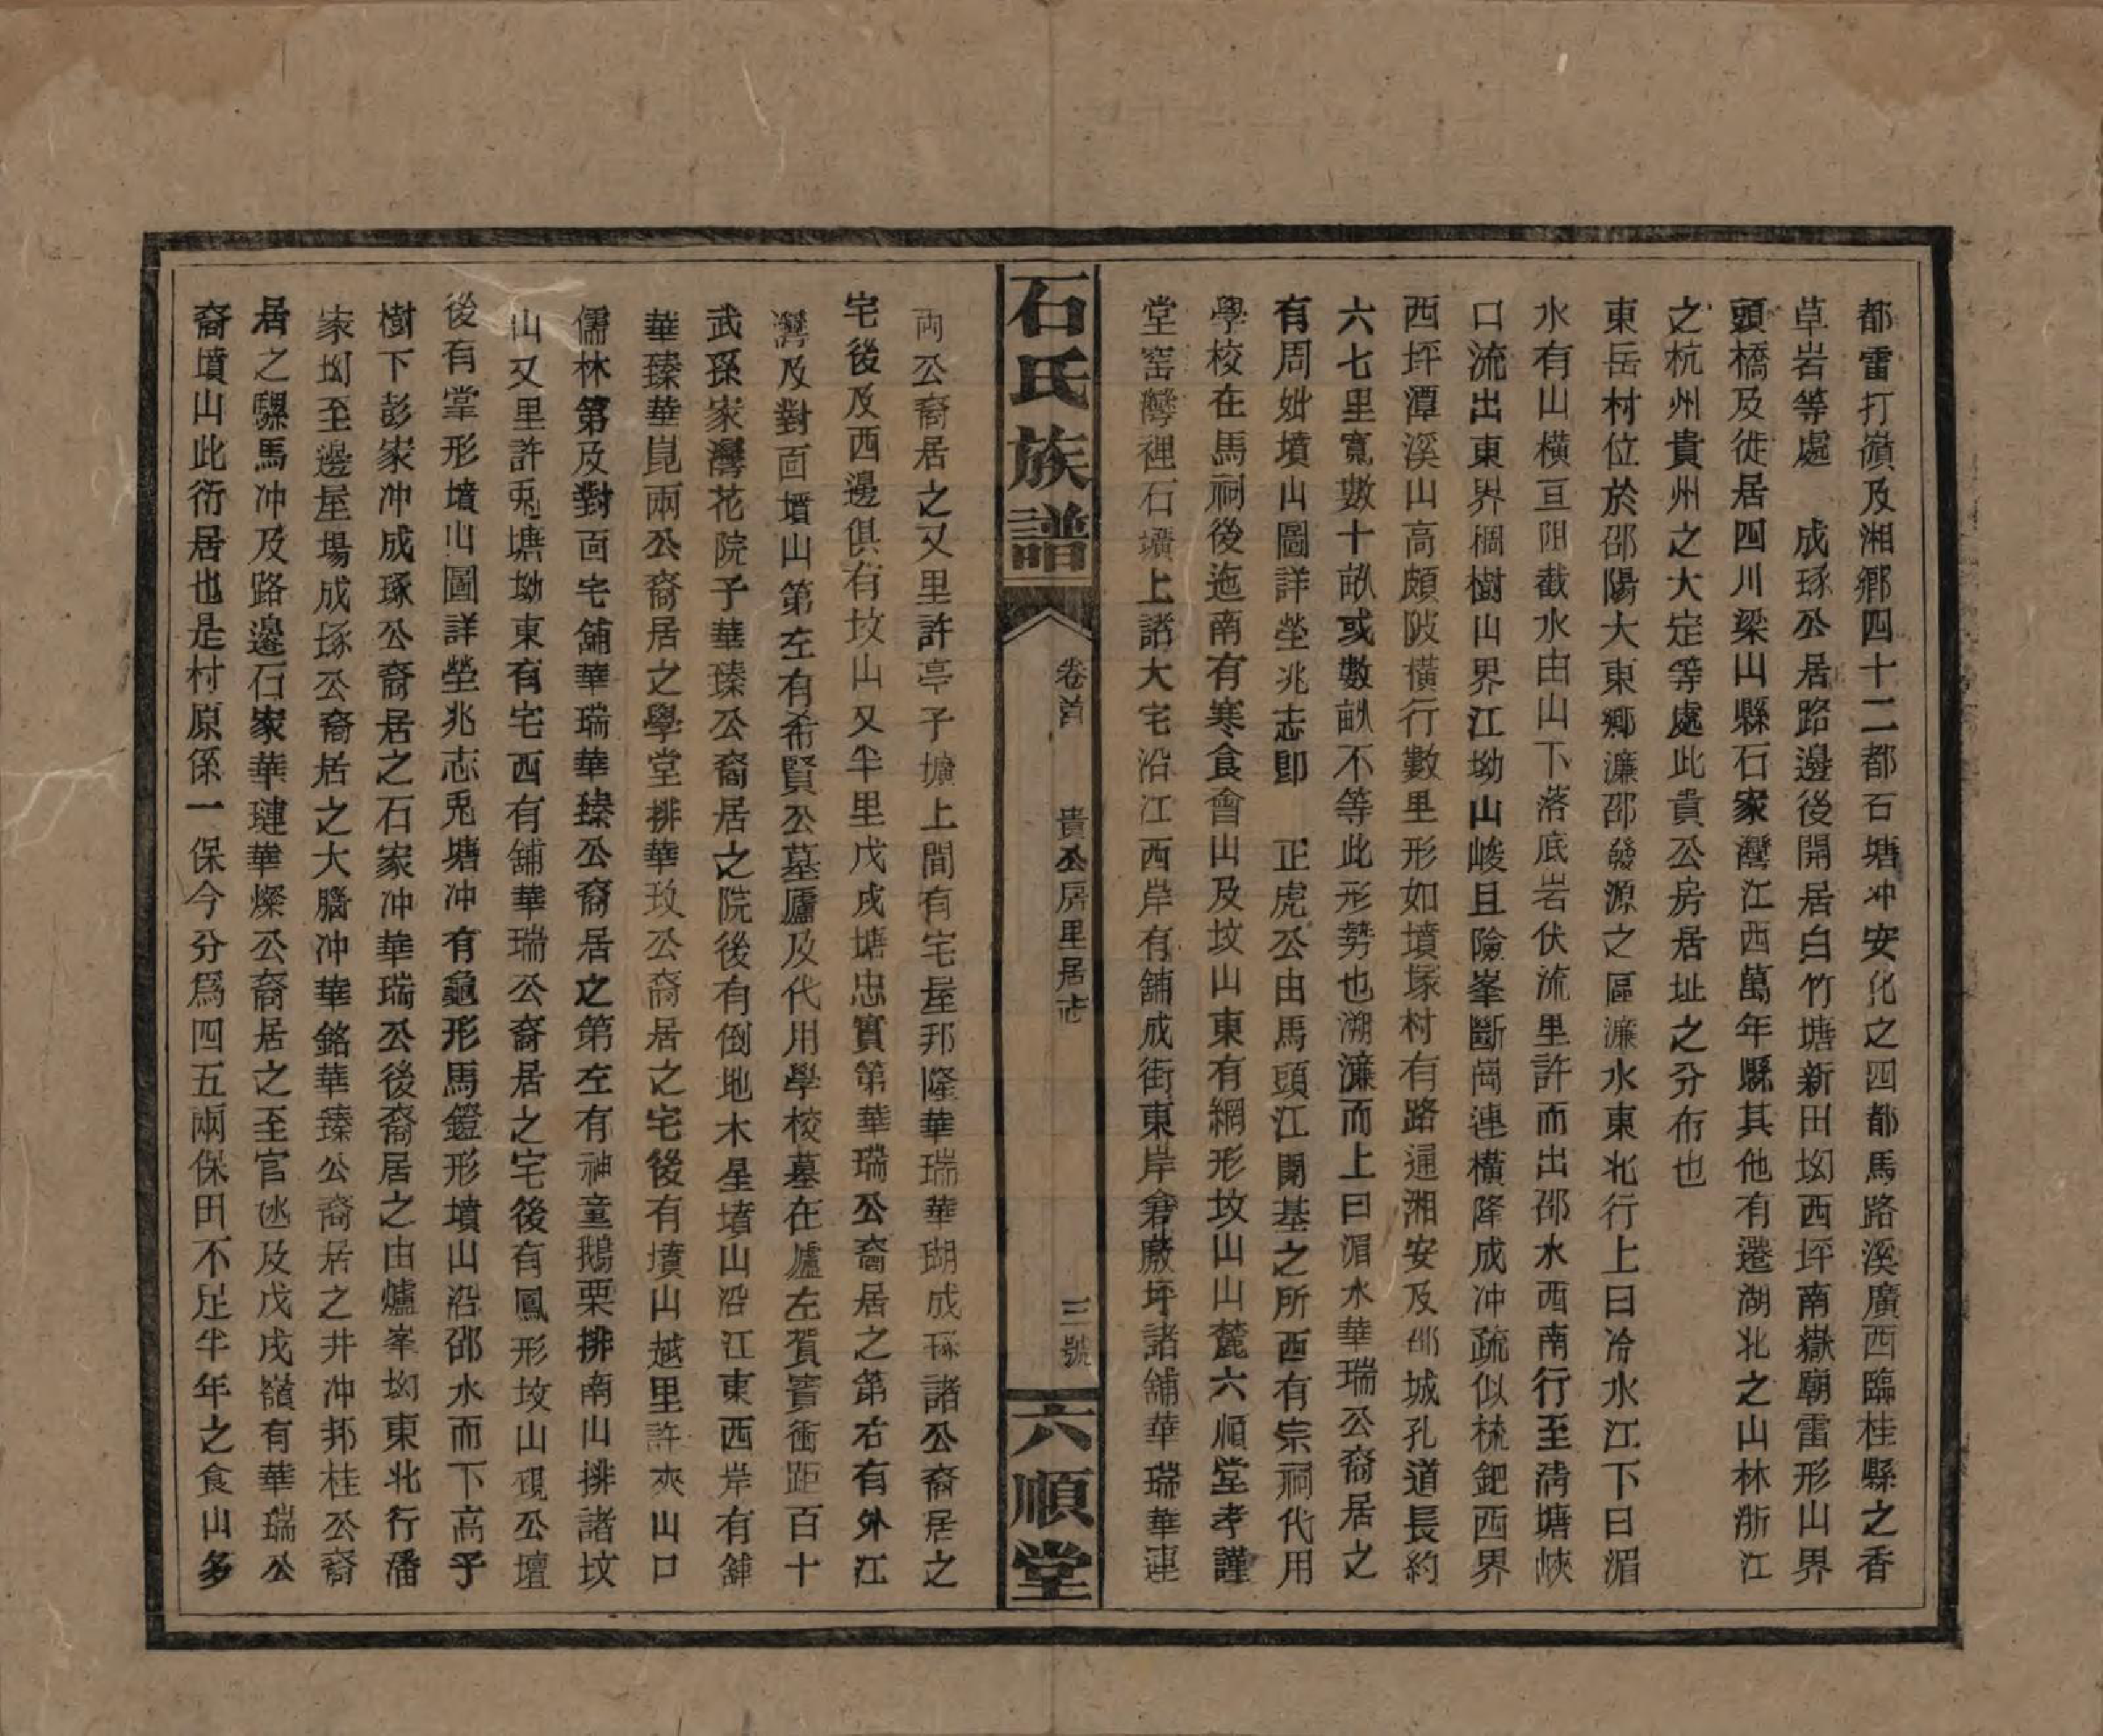 都雷打嶺及湘鄉四十二都石塘冲安化之四都馬路溪廣西臨桂縣之香
草岩等處　成琢公居路邊後開居白竹塘新田㘭西坪南嶽廟雷形山界
頭橋及徙居四川梁山縣石家灣江西萬年縣其他有遷湖北之山林浙江
之杭州貴州之大定等處此貴公房居址之分布也
東岳村位於邵陽大東鄉濂邵發源之區濂水東北行上曰冷水江下曰湄
水有山橫亘阻截水由山下落底岩伏流里許而出邵水西南行至淸塘峽
口流出東界椆樹山界江坳山峻且險峯斷崗連橫降成冲疏似梳鈀西界
西坪潭溪山高頗陂橫行數里形如墳塚村有路通湘安及邵城孔道長約
六七里寬數十畝或數畝不等此形勢也溯濂而上曰湄水華瑞公裔居之
有周妣墳山圖詳塋兆志卽　正虎公由馬頭江開基之所西有宗祠代用
學校在馬祠後迤南有寒食會山及坟山東有網形坟山山麓六順堂孝謹
堂窰灣裡石壙上諸大宅沿江西岸有舖成街東岸倉廒坪諸舖華瑞華連
石氏族譜
卷首
貴公房里居志
三號
六順堂
両公裔居之又里許亭子壙上間有宅屋邦隆華瑞華瑚成琢諸公裔居之
宅後及西邊俱有坟山又半里戊戌塘忠實第華瑞公裔居之第右有外江
灣及對面墳山第左有希賢公墓廬及代用學校墓在廬左賀賓衝距百十
武孫家灣花院子華瑧公裔居之院後有倒地木星墳山沿江東西岸有舖
華瑧華崑兩公裔居之學堂排華玫公裔居之宅後有墳山越里許夾山口
儒林第及對面宅舖華瑞華瑧公裔居之第左有神童鵝栗排南山排諸坟
山又里許兎塘坳東有宅西有舖華瑞公裔居之宅後有鳳形坟山覌公壇
後有掌形墳山圖詳塋兆志兎塘冲有龜形馬鐙形墳山沿邵水而下高乎
樹下彭家冲成琢公裔居之石家冲華瑞公後裔居之由爐峯㘭東北行潘
家㘭至邊屋場成琢公裔居之大腦冲華銘華瑧公裔居之井冲邦桂公裔
居之騾馬冲及路邊石家華璉華燦公裔居之至官氹及戊戌嶺有華瑞公
裔墳山此衍居也是村原係一保今分爲四五兩保田不足半年之食山多